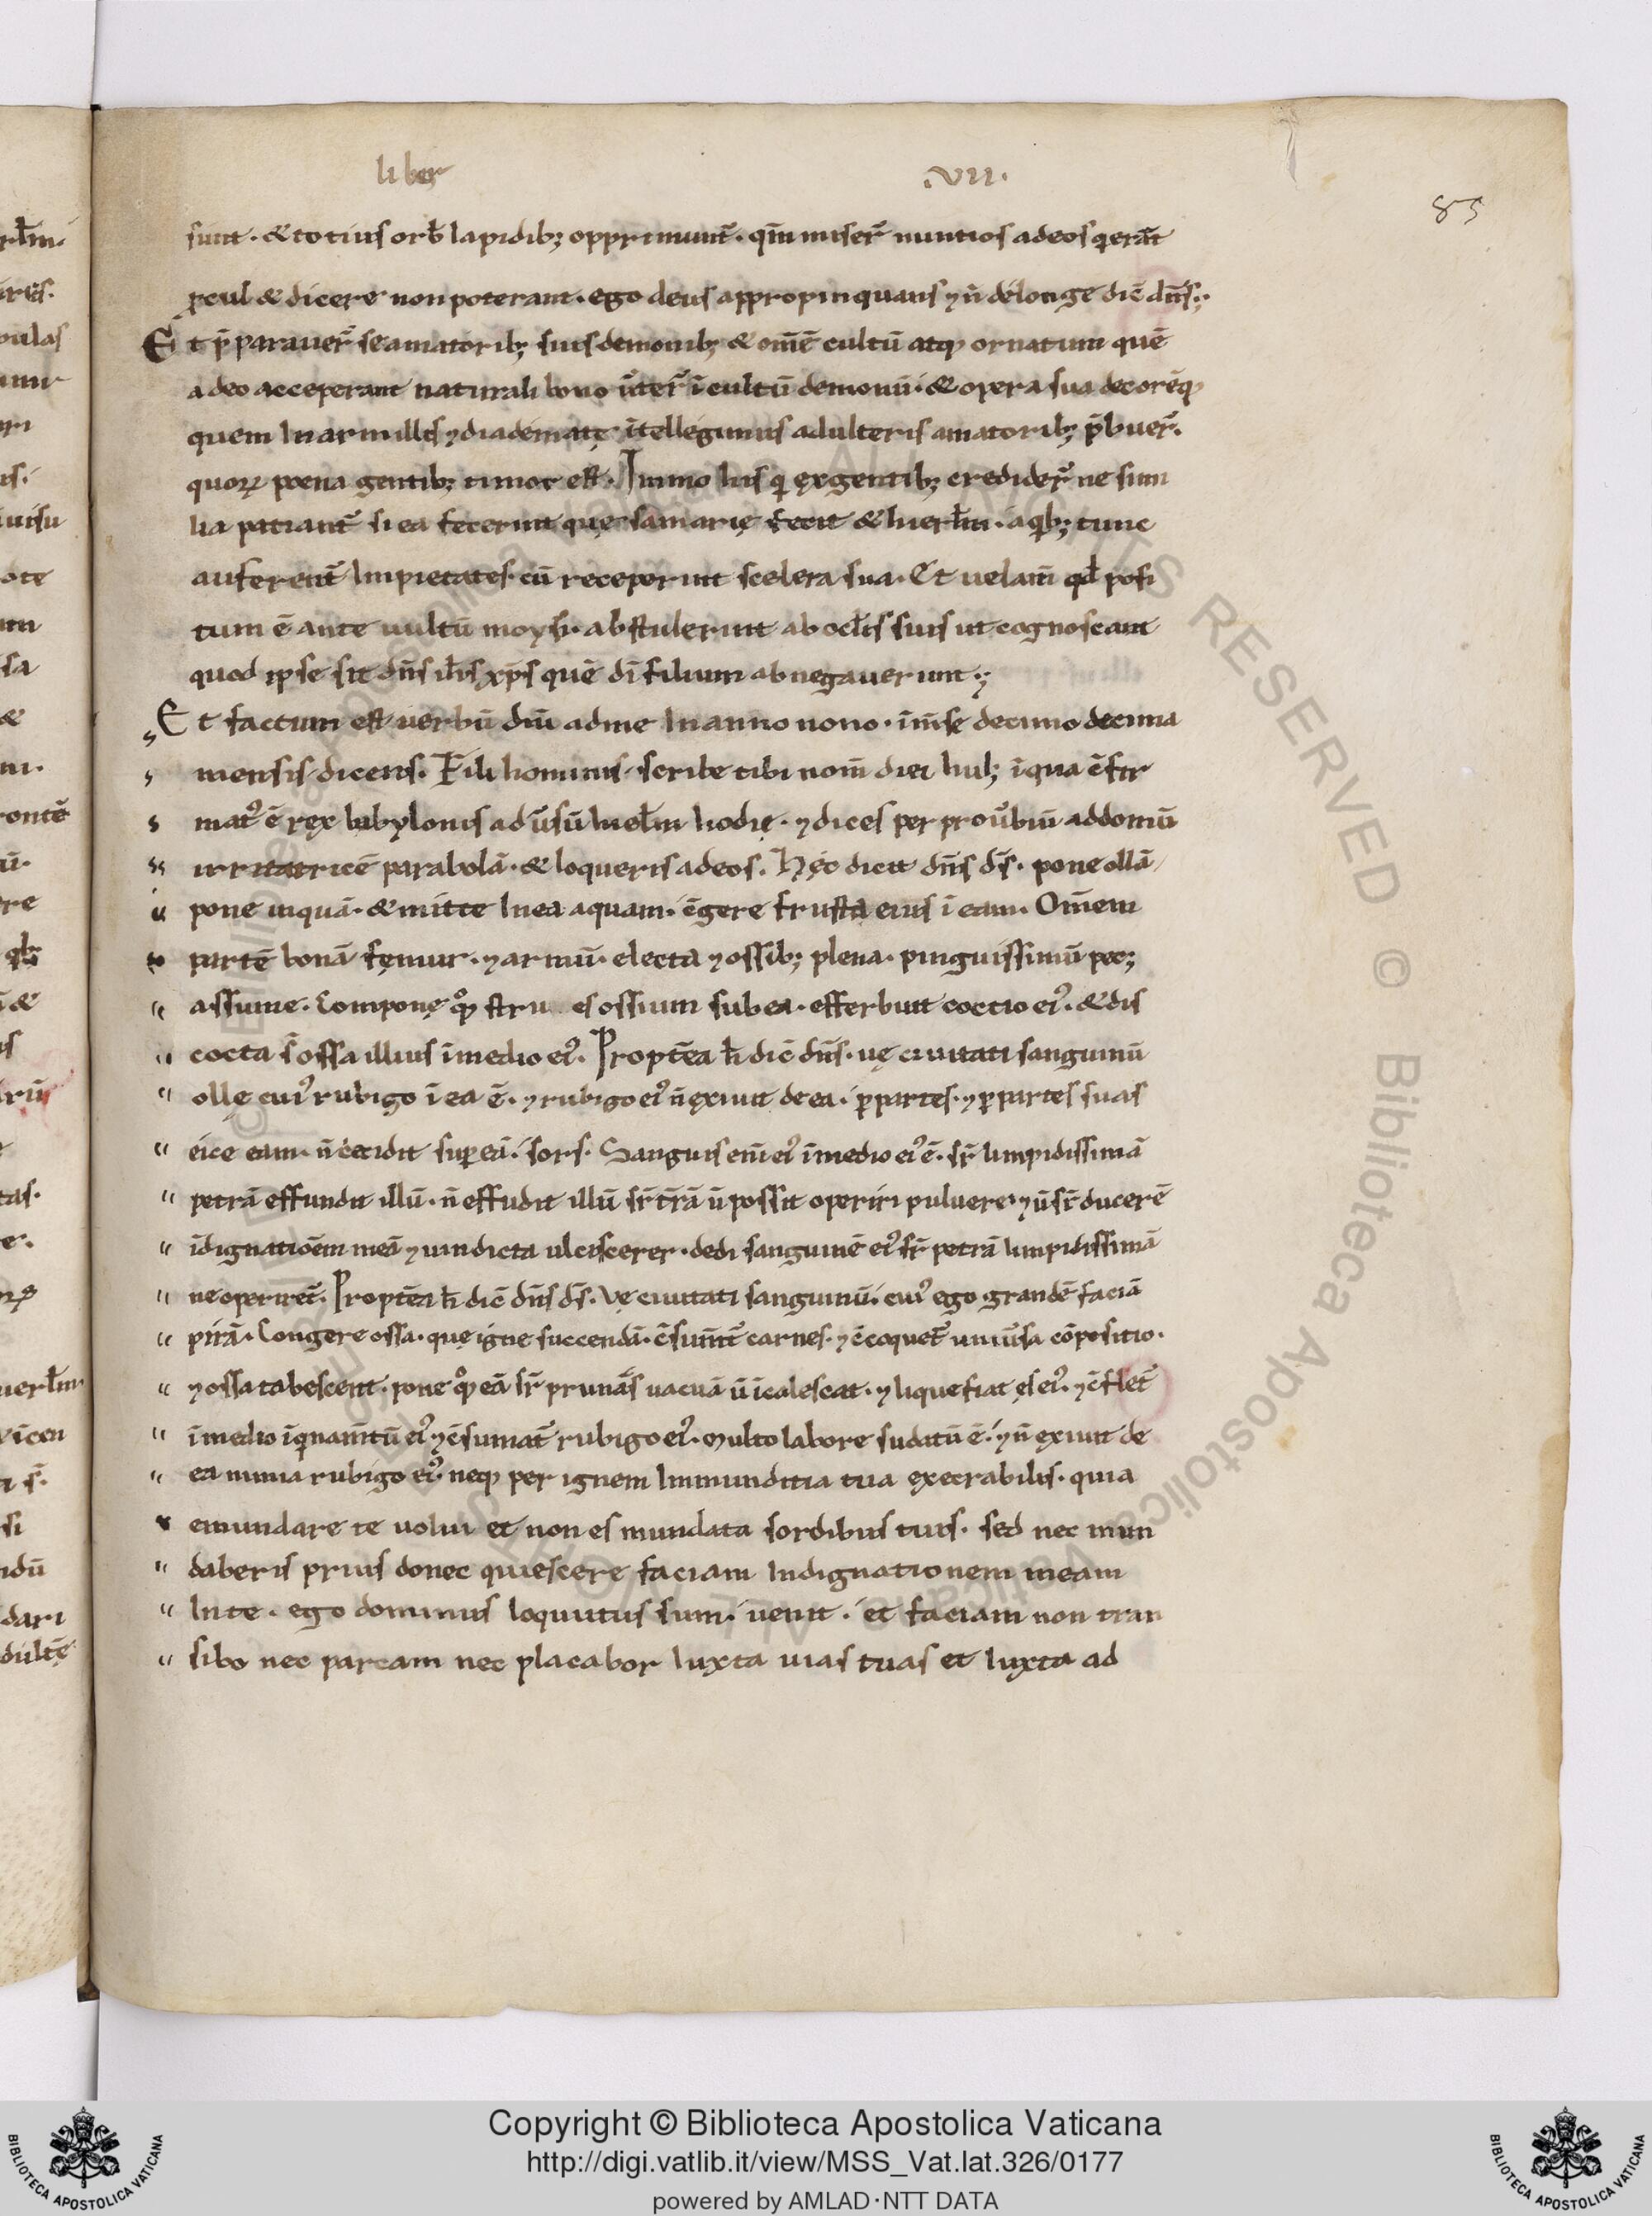 liber .VII.
85
sunt · & totius orb̄ lapidib; opprimunt̄ · qm̄ miser̄ nuntios adeos q erāt
ꝓcul & dicere non poterant · ego deus appropinquans ⁊ n̄ delonge dic̄ dn̄s ;
Et p̄paraver̄ se amatorib; suis demonib; & om̄ē cultū atq; ornatum quē
adeo acceperant naturali bono ūter̄ ī cultū demonū · & opera sua decorēq;
quem In armillis ⁊ diademate ītellegimus adulteris amatorib; p̄buer̄.
quoꝝ poena gentib; timor est. Immo his q ęx gentib; credider̄ ne simi
lia patiant̄ si ea fecerint quę samarię fecit & hierl̄m · aqb; tunc
auferent̄ Impietates · cū receperint scelera sua · Et uelam̄ qd̄ posi
tum ē ante uultū moysi · abstulerint ab ocl̄is suis ut cognoscant
quod ipse sit dn̄s ih̄s xp̄s quē dī filium abnegauerunt ;
Et factum est uerbū dn̄i adme In anno nono · īm̄se decimo decima
mensis · dicens. Fili hominis · scribe tibi nom̄ diei hui; īqua c̄fir
mat᾽ ē ręx babylonis ad ūsū hierl̄m hodię · ⁊ dices per prou̅biū addomū
irritatricē parabolā · & loqueris adeos. Hęc dicit dn̄s ds̄ · pone ollā
pone inquā · & mitte In ea aquam · c̄gere frusta eius ī eam · Om̄em
partē bonā fęmur · ⁊ armū · electa ⁊ ossib; plena · pinguissimū pec;
assume. Componę qꝫ stru es ossium sub ea · efferbuit coctio ei᾽ · & dis
cocta s̄ ossa illius ī medio ei᾽. Propt̄ea h̄ dic̄ dn̄s · uę ciuitati sanguinū
ollę cui᾽ rubigo ī ea ē · ⁊ rubigo ei᾽ n̄ ęxiuit de ea · ꝑ partes · ⁊ ꝑ partes suas
eice eam · n̄ cecidit suꝑ eā · sors · Sanguis enī ei᾽ ī medio ei᾽ ē · sr̄ limpidissimā
petrā effundit illū · n̄ effudit illū sr̄ tr̄ā ū possit operiri puluere · ⁊ ū sr̄ ducerē
īdignatiōem meā ⁊ uindicta ulciscerer · dedi sanguinē ei᾽ sr̄ petrā limpidissimā
ne operiret̄. Propt̄ea h̄ dic̄ dn̄s ds̄ · Vę ciuitati sanguinū · cui᾽ ego grandē faciā
pirā · Congere ossa · quę igne succendā · c̄sumt̄ carnes · ⁊ c̄coquet̄ uniūsa cōpositio ·
⁊ ossa tabescent · pone qꝫ eā sr̄ prunas uacuā ū īcalescat · ⁊ liquefiat ęs ei᾽ · ⁊ c̄flet̄
ī medio īqnam̄tū ei᾽ ⁊ c̄sumat̄ rubigo ei᾽ · multo labore sudatū ē · ⁊ n̄ ęxiuit de
ea nimia rubigo ei᾽ · neq; per ignem Immunditia tua ęxecrabilis · quia
emundare te uolui et non es mundata sordibus tuis · sed nec mun
daberis prius donec quiescere faciam Indignationem meam
In te · ego dominus loquutus sum · uenit · et faciam non tran
sibo nec parcam nec placabor Iuxta uias tuas et Iuxta ad
Copyright © Biblioteca Apostolica Vaticana
http://digi.vatlib.it/view/MSS_Vat.lat.326/0177
powered by AMLAD·NTT DATA